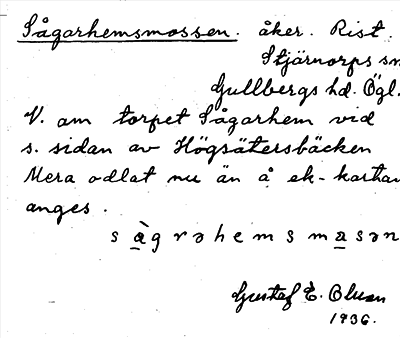 Sågarhemsmossen. åker. Rist.
Stjärnorps sn
Gullbergs hd. Ögl.
V. om torpet Sågarhem vid
s. sidan av Högsätersbäcken
Mera odlat nu än å ek-kartan
anges.
s à g r ə h e m s m a s ə n
Gustaf E.
1936.